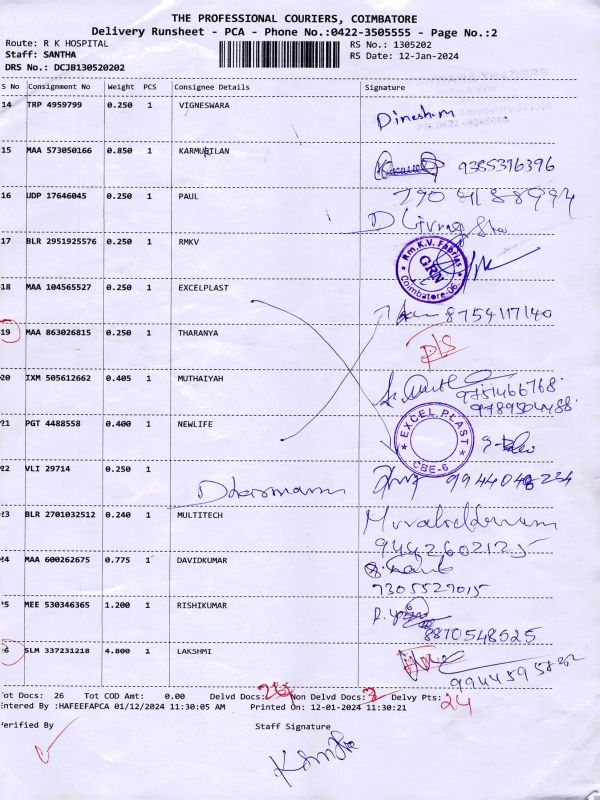 THE PROFESSIONAL COURIERS, COIMBATORE
Delivery Runsheet - PCA - Phone No.:0422-3505555 - Page No.:2
Route: R K HOSPITAL
RS No.: 1305202
Staff: SANTHA
RS Date: 12-Jan-2024
DRS No.: DCJB130520202
S No Consignment No Weight PCS Consignee Details Signature
14 TRP 4959799 0.250 1 VIGNESWARA
15 MAA 573050166 0.850 1 KARMUKILAN
9385376396
16 UDP 17646045 0.250 1 PAUL
17 BLR 2951925576 0.250 1 RMKV
Rm.K.V. Fabrics
GRN
Coimbatore-06.
18 MAA 104565527 0.250 1 EXCELPLAST
8754117140
19 MAA 863026815 0.250 1 THARANYA
D/S
20 IXM 505612662 0.405 1 MUTHAIYAH
9751466768.
9789504488.
21 PGT 4488558 0.400 1 NEWLIFE
EXCEL PLAST
CBE-6
22 VLI 29714 0.250 1
23 BLR 2701032512 0.240 1 MULTITECH
24 MAA 600262675 0.775 1 DAVIDKUMAR
9305529015
25 MEE 530346365 1.200 1 RISHIKUMAR
8870548525
26 SLM 337231218 4.800 1 LAKSHMI
Tot Docs: 26 Tot COD Amt: 0.00 Delvd Docs: Non Delvd Docs: Delvy Pts: 24
Entered By :HAFEEFAPCA 01/12/2024 11:30:05 AM Printed On: 12-01-2024 11:30:21
Verified By Staff Signature